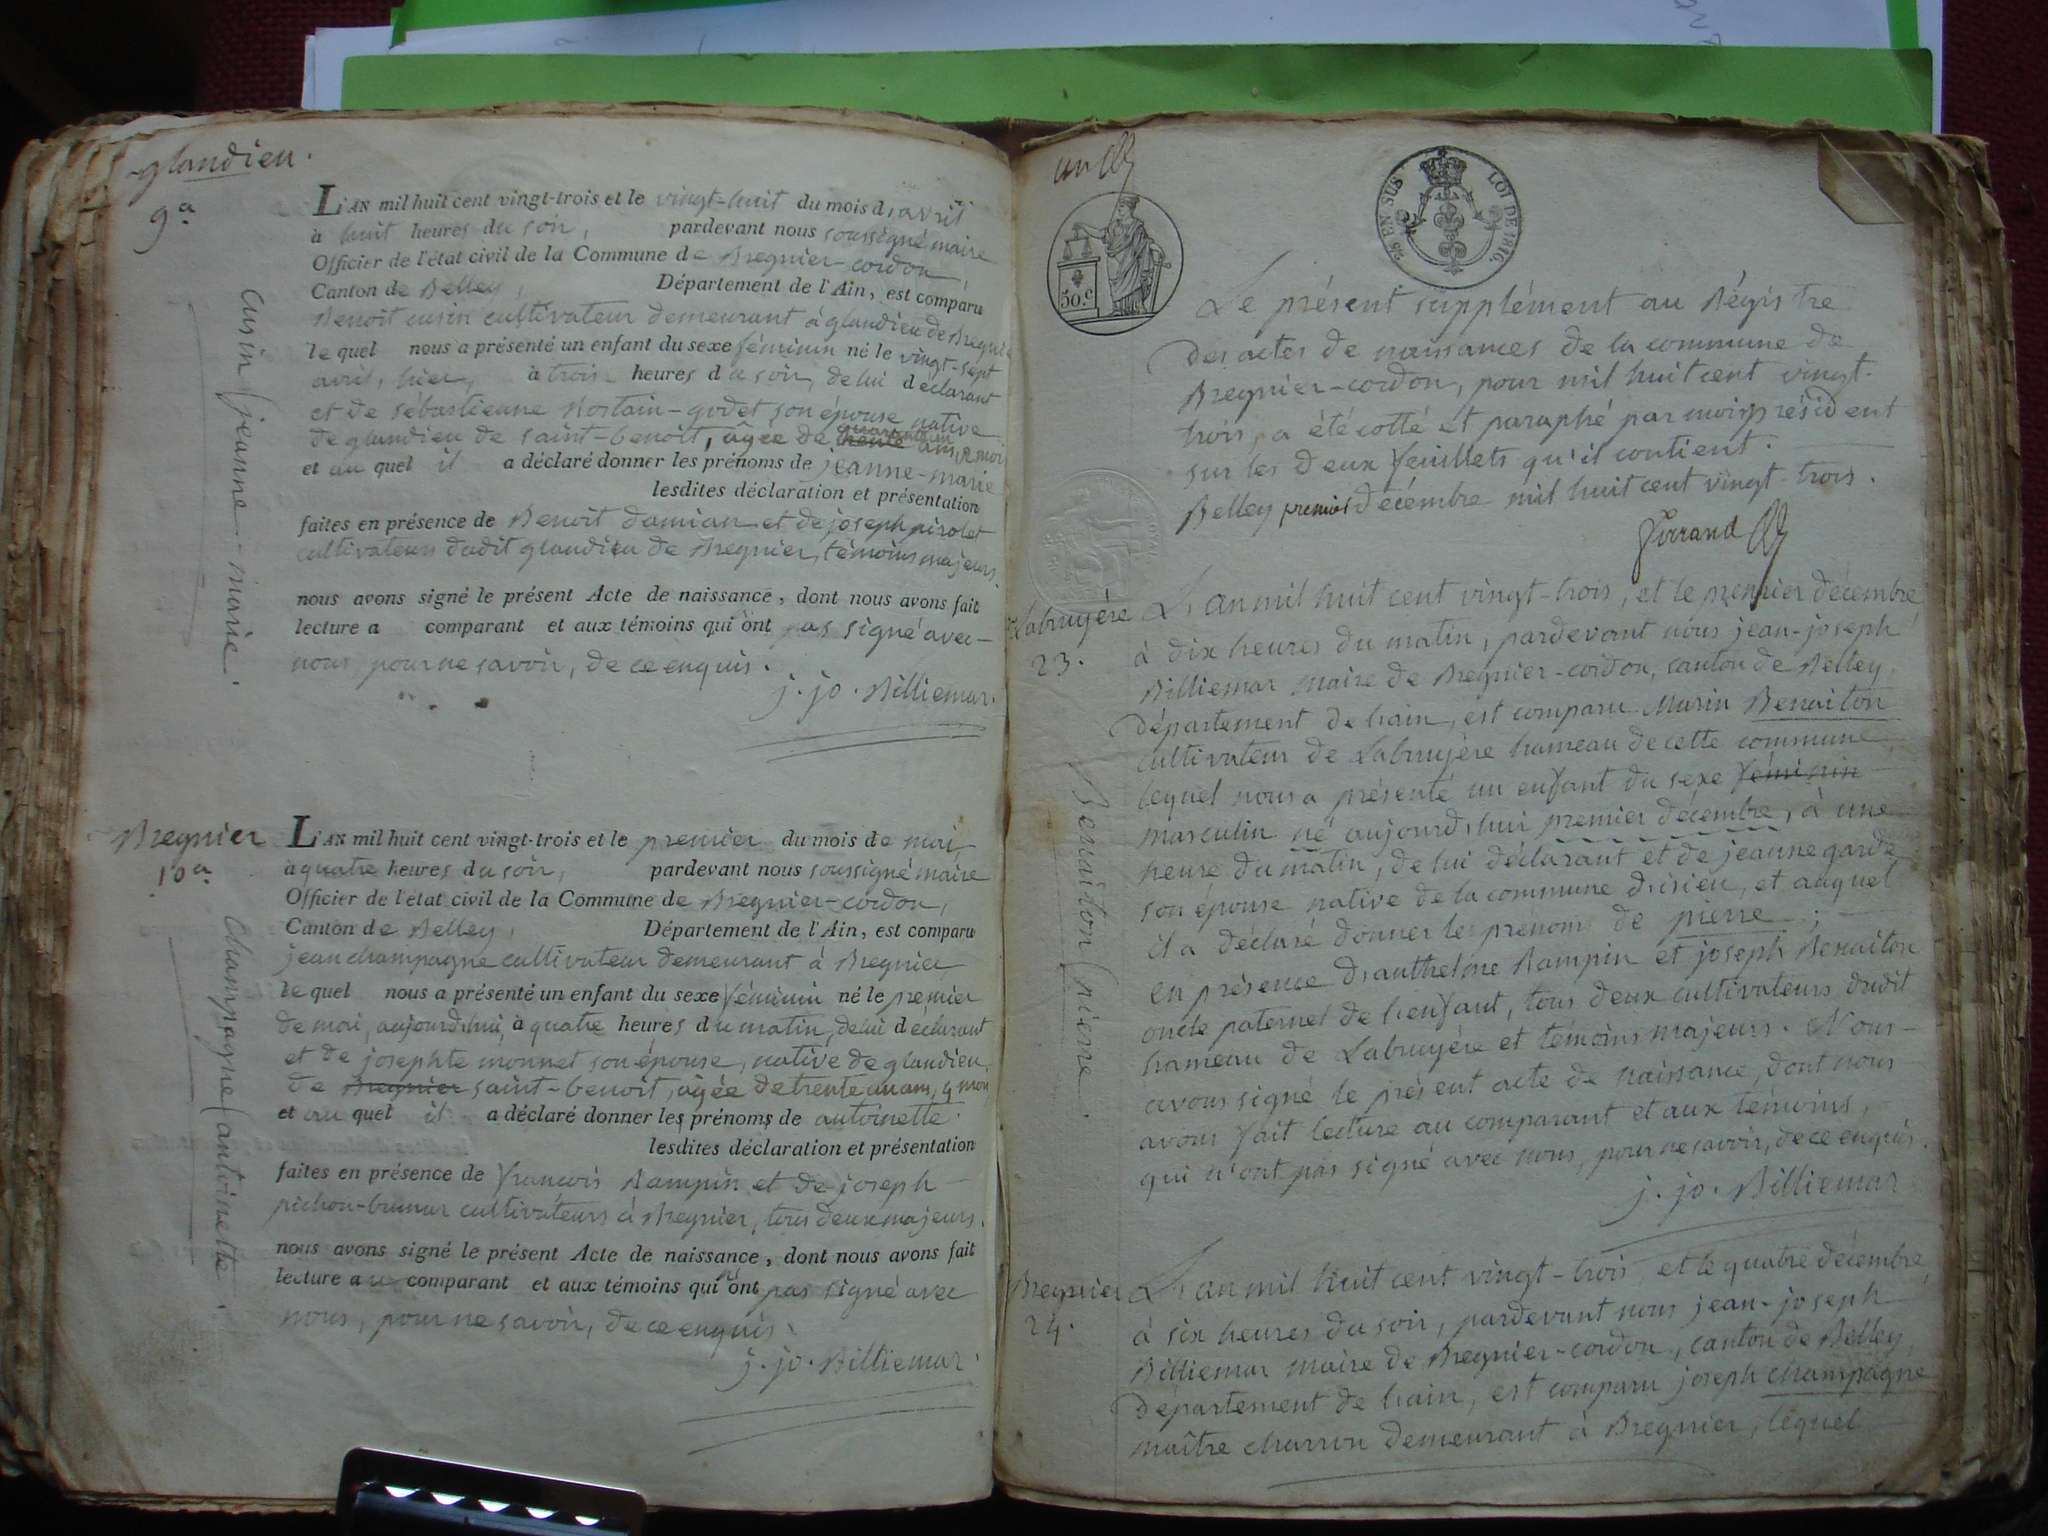 glandieu.
9a
Cusin jeanne-marie.
L'AN mil huit cent vingt-trois et le vingt-huit du mois d'avril
à huit heures du soir, pardevant nous soussigné maire
Officier de l'état civil de la Commune de Bregnier-cordon
Canton de Belley, Département de l'Ain, est comparu
Benoit cusin cultivateur demeurant à glandieu de Bregnier
le quel nous a présenté un enfant du sexe féminin né le vingt-sept
avril, hier, à trois heures du soir, de lui déclarant
et de sébastienne Rostain-godet son épouse native
de glandieu de saint-benoit, âgée de ans,
et au quel il a déclaré donner les prénoms de jeanne-marie
lesdites déclaration et présentation
faites en présence de Benoit damian et de joseph pirolet
cultivateurs dudit glandieu de Bregnier, témoins majeurs.
nous avons signé le présent Acte de naissance, dont nous avons fait
lecture a comparant et aux témoins qui n'ont pas signé avec-
nous, pour ne savoir, de ce enquis.
j. jo. Billiemar.
Bregnier
10a
Champagne antoinette.
L'AN mil huit cent vingt-trois et le premier du mois de mai,
à quatre heures du soir, pardevant nous soussigné maire
Officier de l'état civil de la Commune de Bregnier-cordon,
Canton de Belley, Département de l'Ain, est comparu
jean champagne cultivateur demeurant à Bregnier
le quel nous a présenté un enfant du sexe féminin né le premier
de mai, aujourd'hui, à quatre heures du matin, de lui déclarant
et de josephte monnet son épouse, native de glandieu,
de Bregnier saint-benoit, âgée de trente un ans, 4 moi
et au quel il a déclaré donner les prénoms de antoinette.
lesdites déclaration et présentation
faites en présence de françois Rampin et de joseph
pichon-brunar cultivateurs à Bregnier, tous deux majeurs.
nous avons signé le présent Acte de naissance, dont nous avons fait
lecture au comparant et aux témoins qui n'ont pas signé avec
nous, pour ne savoir, de ce enquis.
j. jo. Billiemar.
un
50.c
25 EN SUS
LOI DE 1816.
Le présent supplément au Régistre
des actes de naissances de la commune de
Bregnier-cordon, pour mil huit cent vingt-
trois, a été cotté et paraphé par moi président
sur les deux feuillets qu'il contient.
Belley premier décembre mil huit cent vingt-trois.
Ferrand
Labruyère
23.
Benaiton pierre.
L'an mil huit cent vingt-trois, et le premier décembre
à dix heures du matin, pardevant nous jean-joseph
Billiemar maire de Bregnier-cordon, canton de Belley,
département de l'ain, est comparu Marin Benaiton
cultivateur de Labruyère hameau de cette commune
lequel nous a présenté un enfant du sexe féminin
masculin né aujourd'hui premier décembre, à une
heure du matin, de lui déclarant et de jeanne garde
son épouse native de la commune d'isieu, et auquel
il a déclaré donner les prénoms de pierre ;
en présence d'anthelme Rampin et joseph Benaiton
oncle paternel de l'enfant, tous deux cultivateurs dudit
hameau de Labruyère et témoins majeurs. Nous-
avons signé le présent acte de naissance, dont nous
avons fait lecture au comparant et aux témoins,
qui n'ont pas signé avec nous, pour ne savoir, de ce enquis.
j. jo. Billiemar
Bregnier
24.
L'an mil huit cent vingt-trois, et le quatre décembre,
à six heures du soir, pardevant nous jean-joseph
Billiemar maire de Bregnier-cordon, canton de Belley,
département de l'ain, est comparu joseph champagne
maître charron demeurant à Bregnier, lequel